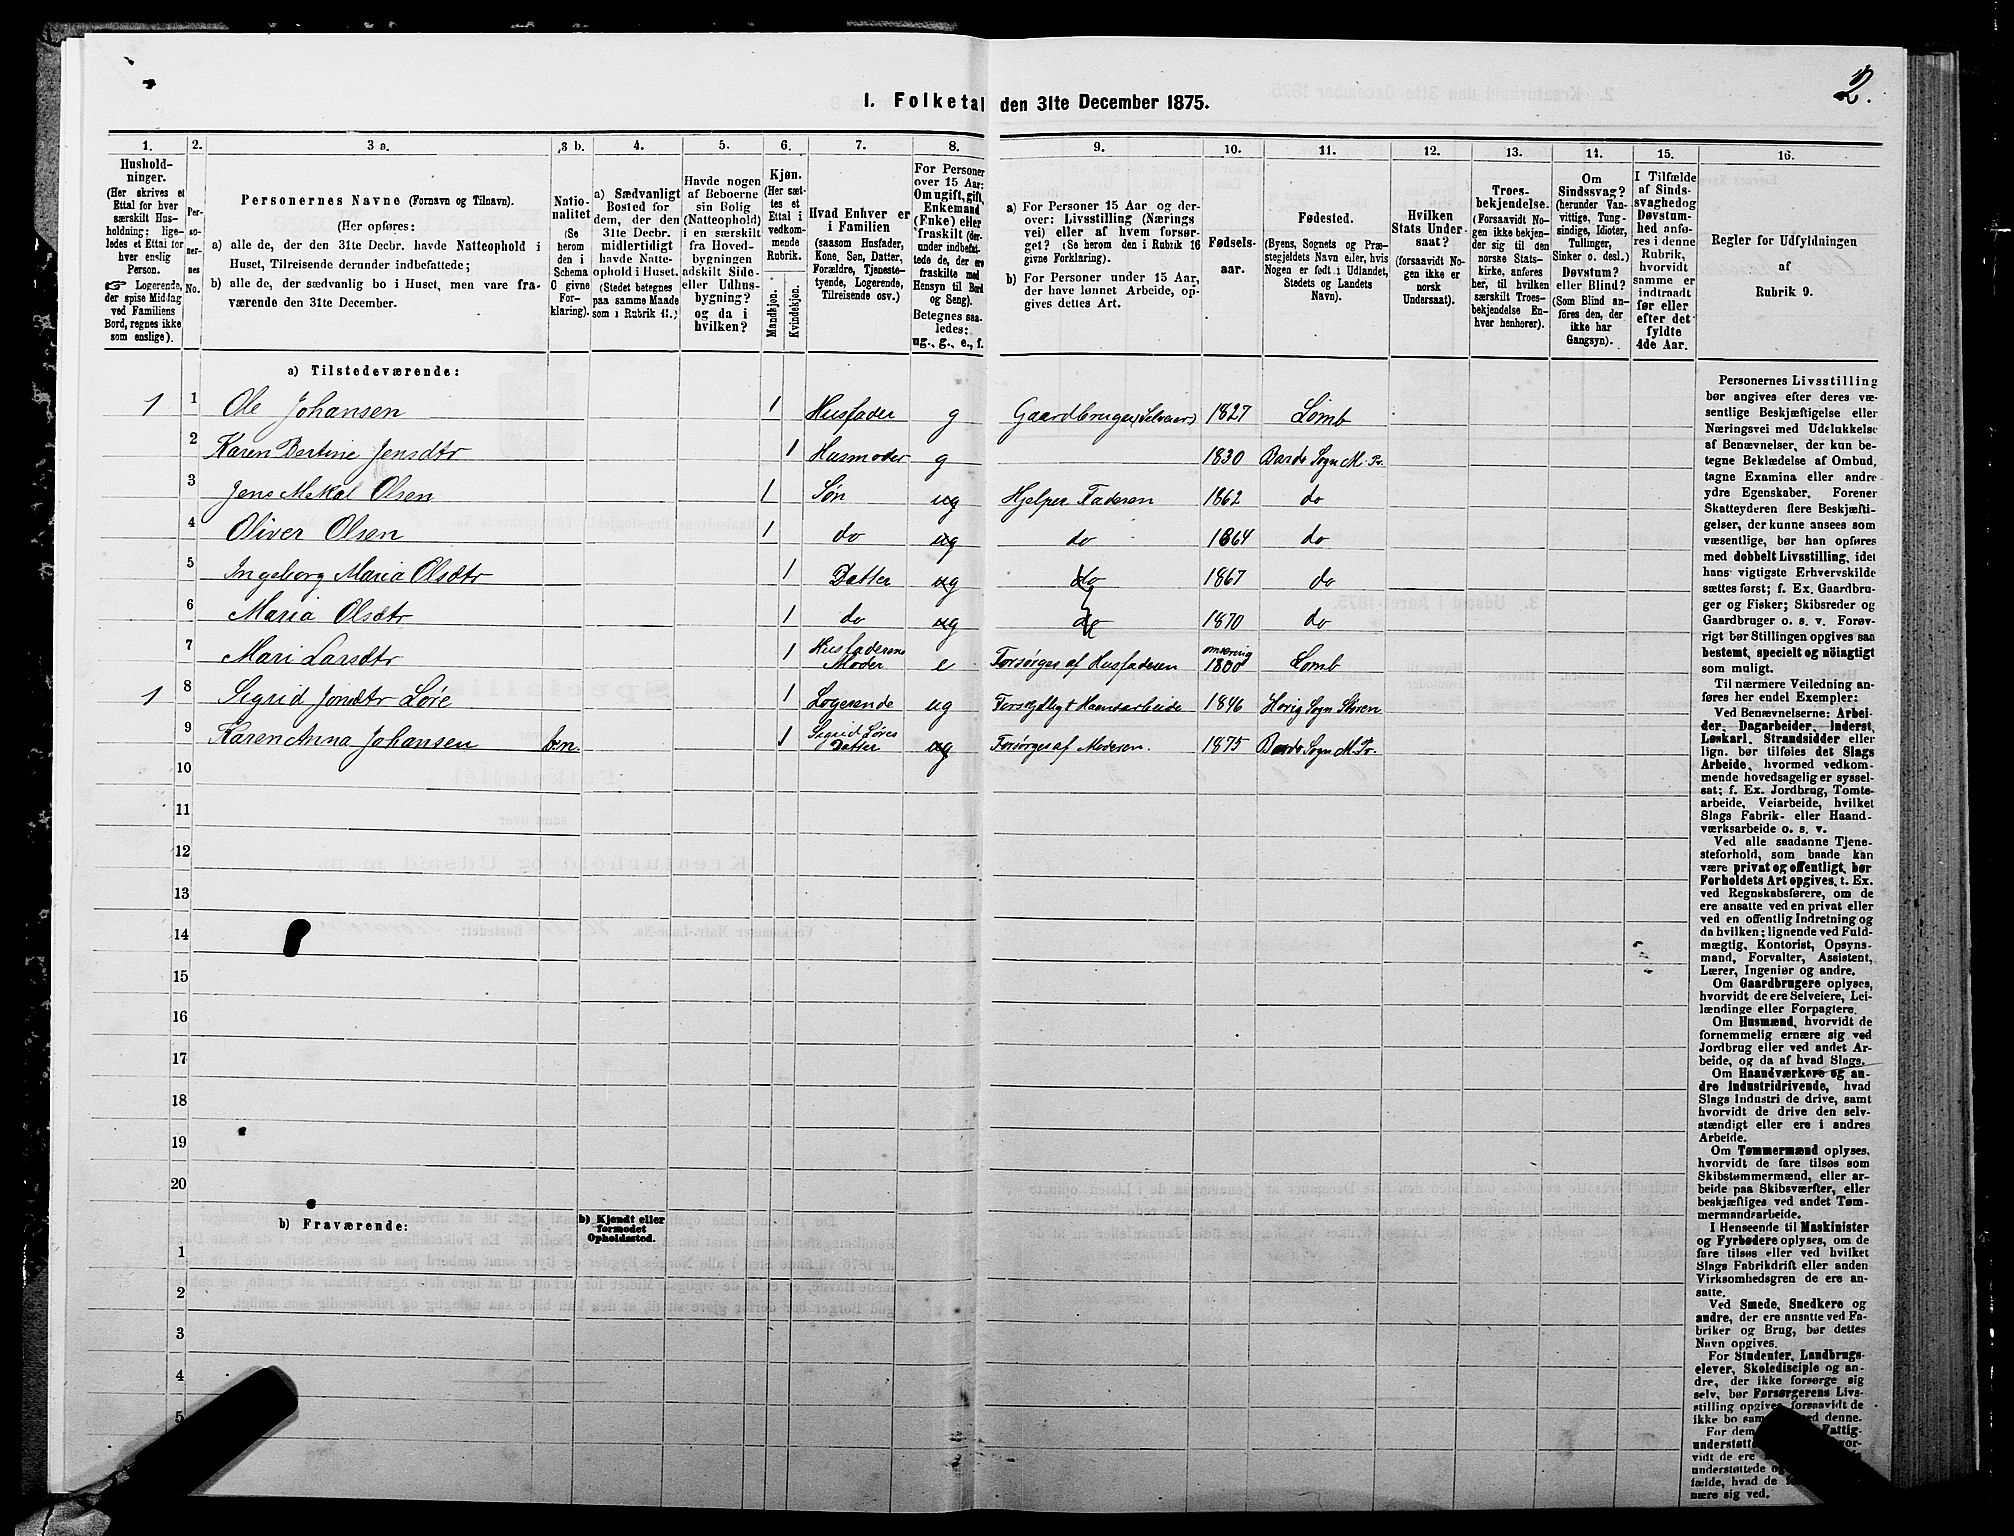 2.
I. Folketal den 31te December 1875.
1. 2. 3 a. 3 b. 4. 5. 6. 7. 8. 9. 10. 11. 12. 13. 14. 15. 16.
Hushold-
ninger.
(Her skrives et
Ettal for hver
særskilt Hus-
holdning; lige-
ledes et Ettal for
hver enslig
Person.
☞ Logerende,
der spise Middag
ved Familiens
Bord, regnes ikke
som enslige).
Per-
so-
ner-
nes
No.
Personernes Navne (Fornavn og Tilnavn).
(Her opføres:
a) alle de, der den 31te Decbr. havde Natteophold i
Huset, Tilreisende derunder indbefattede;
b) alle de, der sædvanlig bo i Huset, men vare fra-
værende den 31te December.
Natio-
nalitet
(Se
herom
den i
Schema
C givne
For-
klaring).
a) Sædvanligt
Bosted for
dem, der den
31te Decbr.
midlertidigt
havde Natte-
ophold i Huset.
(Stedet betegnes
paa samme Maade
som i Rubrik 11.)
Havde nogen
af Beboerne
sin Bolig
(Natteophold)
i en særskilt
fra Hoved-
bygningen
adskilt Side-
eller Udhus-
bygning?
og da i
hvilken?
Kjøn.
(Her sæt-
tes et
Ettal i
vedkom-
mende
Rubrik.
Mandkjøn.
Kvindekjøn.
Hvad Enhver er
i Familien
(saasom Husfader,
Kone, Søn, Datter,
Forældre, Tjeneste-
tyende, Logerende,
Tilreisende osv.)
For Personer
over 15 Aar:
Om ugift, gift,
Enkemand
(Enke) eller
fraskilt (der-
under indbefat-
tede de, der ere
fraskilte med
Hensyn til Bord
og Seng).
Betegnes saa-
ledes:
ug., g., e., f.
a) For Personer 15 Aar og der-
over: Livsstilling (Nærings
vei) eller af hvem forsør-
get? (Se herom den i Rubrik 16
givne Forklaring).
b) For Personer under 15 Aar,
der have lønnet Arbeide, op-
gives dettes Art.
Fødsels-
aar.
Fødested.
(Byens, Sognets og Præ-
stegjeldets Navn eller, hvis
Nogen er født i Udlandet,
Stedets og Landets
Navn).
Hvilken
Stats Under-
saat?
(forsaavidt No-
gen ikke er
norsk
Undersaat).
Troes-
bekjendelse.
(Forsaavidt No-
gen ikke bekjen-
der sig til den
norske Stats-
kirke, anføres
her, til hvilken
særskilt Troes-
bekjendelse En-
hver henhører).
Om
Sindssvag?
(herunder Van-
vittige, Tung-
sindige, Idioter,
Tullinger,
Sinker o. desl.)
Døvstum?
eller Blind?
(Som Blind an-
føres den, der
ikke har
Gangsyn).
I Tilfælde
af Sinds-
svaghed og
Døvstum-
hed anfø-
res i denne
Rubrik,
hvorvidt
samme er
indtraadt
før eller
efter det
fyldte
4de Aar.
Regler for Udfyldningen
af
Rubrik 9.
a) Tilstedeværende:
1 1 Ole Johansen 1 Husfader g Gaardbruger (Selveier) 1827 Lomb
2 Karen Bertine Jensdtr 1 Husmoder g 1830 Bardo Sogn M. Pr.
3 Jens Mekal Olsen 1 Søn ug Hjelper Faderen 1862 do
4 Oliver Olsen 1 do ug do 1864 do
5 Ingeborg Maria Olsdtr 1 Datter ug do 1867 do
6 Maria Olsdtr 1 do ug do 1870 do
7 Mari Larsdtr 1 Husfaderens Moder e Forsørges af Husfaderen omkring 1800 Lomb
1 8 Sigrid Jonsdtr Løre 1 Logerende ug Haandarbeide 1846 Horig Sogn Støren
9 Karen Anna Johansen b.n. 1 Sigrid Løres Datter ug Forsørges af Moderen. 1875 Bardo Sogn M. Pr.
10
11
12
13
14
15
16
17
18
19
20
b) Fraværende:
b) Kjendt eller
formodet
Opholdssted.
1
2
3
4
5
Personernes Livsstilling
bør angives efter deres væ-
sentlige Beskjæftigelse eller
Næringsvei med Udelukkelse
af Benævnelser, der kun be-
tegne Beklædelse af Ombud,
tagne Examina eller andre
ydre Egenskaber. Forener
Skatteyderen flere Beskjæfti-
gelser, der kunne ansees som
væsentlige, bør han opføres
med dobbelt Livsstilling, idet
hans vigtigste Erhvervskilde
sættes først; f. Ex. Gaardbru-
ger og Fisker; Skibsreder og
Gaardbruger o. s. v. Forøv-
rigt bør Stillingen opgives saa
bestemt, specielt og nöiagtigt
som muligt.
Til nærmere Veiledning an-
føres her endel Exempler:
Ved Benævnelserne: Arbei-
der, Dagarbeider, Inderst,
Løskarl, Strandsidder eller
lign. bør tilføies det Slags
Arbeide, hvormed vedkom-
mende hovedsagelig er syssel-
sat; f. Ex. Jordbrug, Tomte-
arbeide, Veiarbeide, hvilket
Slags Fabrik- eller Haand-
værksarbeide o. s. v.
Ved alle saadanne Tjene-
steforhold, som baade kan
være privat og offentligt, bør
Forholdets Art opgives, t. Ex.
ved Regnskabsførere, om de
ere ansatte ved en privat eller
ved en offentlig Indretning og
da hvilken; lignende ved Fuld-
mægtig, Kontorist, Opsyns-
mand, Forvalter, Assistent,
Lærer, Ingeniør og andre.
Om Gaardbrugere oplyses,
hvorvidt de ere Selveiere, Lei-
lændinge eller Forpagtere.
Om Husmænd, hvorvidt de
fornemmelig ernære sig ved
Jordbrug eller ved andet Ar-
beide, og da af hvad Slags.
Om Haandværkere og an-
dre Industridrivende, hvad
Slags Industri de drive, samt
hvorvidt de drive den selv-
stændigt eller ere i andres
Arbeide.
Om Tømmermænd oplyses,
hvorvidt de fare tilsøs som
Skibstømmermænd, eller ar-
beide paa Skibsværfter, eller
beskjæftiges ved andet Tøm-
mermandsarbeide.
I Henseende til Maskinister
og Fyrbødere oplyses, om de
fare tilsøs eller ved hvilket
Slags Fabrikdrift eller anden
Virksomhedsgren de ere an-
satte.
Ved Smede, Snedkere og
andre, der ere ansatte ved Fa-
briker og Brug, bør dettes
Navn opgives.
For Studenter, Landbrugs-
elever, Skoledisciple og an-
dre, der ikke forsørge sig
selv, bør Forsørgerens Livs-
stilling opgives, forsaavidt de
ikke bo sammen med denne.
For dem Fattig-
understøtte
vidt de ere
understøttede
fælde, hvad de
nære sig ved.